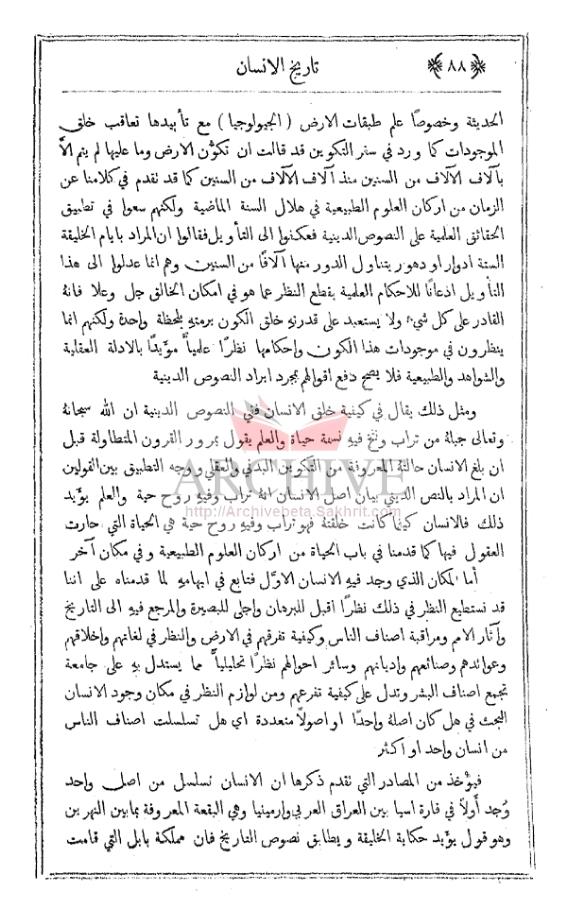 ﴿ ٨٨ ﴾
تاريخ الانسان
الحديثة وخصوصًا علم طبقات الارض ( الجيولوجيا ) مع تأييدها تعاقب خلق
الموجودات كما ورد في سفر التكوين قد قالت ان تكوّن الارض وما عليها لم يتم الاّ
بآلاف الآلاف من السنين منذ آلاف الآلاف من السنين كما قد تقدم في كلامنا عن
الزمان من اركان العلوم الطبيعية في هلال السنة الماضية ولكنهم سعوا في تطبيق
الحقائق العلمية على النصوص الدينية فعكفوا الى التأويل فقالوا ان المراد بايام الخليقة
الستة ادوار او دهور يتناول الدور منها آلافًا من السنين وهم انما عدلوا الى هذا
التأويل اذعانًا للاحكام العلمية بقطع النظر عما هو في امكان الخالق جل وعلا فانهُ
القادر على كل شيء ولا يستبعد على قدرتهِ خلق الكون برمتهِ بلحظة واحدة ولكنهم انما
ينظرون في موجودات هذا الكون واحكامها نظرًا علمياً مؤيدًا بالادلة العقلية
والشواهد والطبيعية فلا يصح دفع اقوالهم بمجرد ايراد النصوص الدينية
ومثل ذلك يقال في كيفية خلق الانسان ففي النصوص الدينية ان الله سبحانهُ
وتعالى جبلهُ من تراب ونفخ فيهِ نسمة حياة والعلم يقول بمرور القرون المتطاولة قبل
ان بلغ الانسان حالتهُ المعروفة من التكوين البدني والعقلي ووجه التطبيق بين القولين
ان المراد بالنص الديني بيان اصل الانسان انهُ تراب وفيهِ روح حية والعلم يؤيد
ذلك فالانسان كيفما كانت خلقتهُ فهو تراب وفيهِ روح حية هي الحياة التي حارت
العقول فيها كما قدمنا في باب الحياة من اركان العلوم الطبيعية وفي مكان آخر
أما المكان الذي وجد فيهِ الانسان الاوّل فتابع في ابهامهِ لما قدمناه على اننا
قد نستطيع النظر في ذلك نظرًا اقبل للبرهان واجلى للبصيرة والمرجع فيهِ الى التاريخ
وآثار الامم ومراقبة اصناف الناس وكيفية تفرقهم في الارض والنظر في لغاتهم واخلاقهم
وعوائدهم وصنائعهم واديانهم وسائر احوالهم نظرًا تحليلياً مما يستدل بهِ على جامعة
تجمع اصناف البشر وتدل على كيفية تفرعهم ومن لوازم النظر في مكان وجود الانسان
البحث في هل كان اصلهُ واحدًا او اصولاً متعددة اي هل تسلسلت اصناف الناس
من انسان واحد او اكثر
فيؤخذ من المصادر التي تقدم ذكرها ان الانسان تسلسل من اصل واحد
وُجد أولاً في قارة اسيا بين العراق العربي وارمينيا وهي البقعة المعروفة بما بين النهرين
وهو قول يؤيد حكاية الخليقة ويطابق نصوص التاريخ فان مملكة بابل التي قامت
ARCHIVE
http://Archivebeta.Sakhrit.com